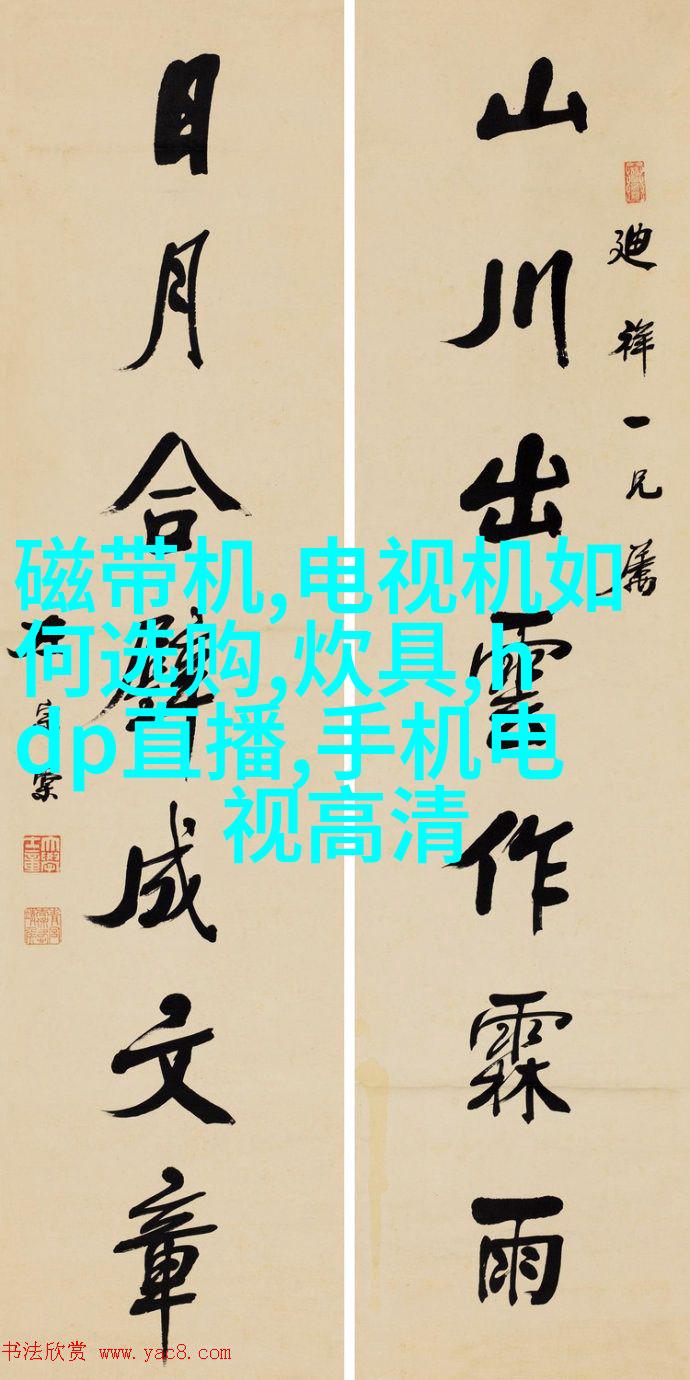 山川出雲作霖雨
廸祥一兄屬
日月合璧成文章
左宗棠
磁带机,电视机如
何选购,炊具,h
dp直播,手机电
视高清
书法欣赏 www.yac8.com